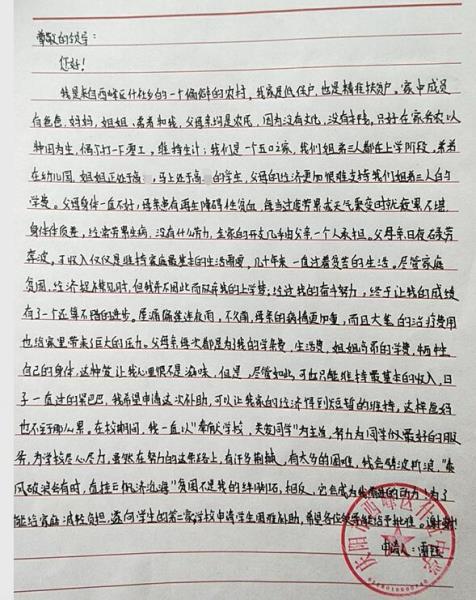 尊敬的领导:
您好!
我是来自西峰区什社乡的一个偏僻的农村,我家是低保户,也是精准扶贫户。家中成员
有爸爸,妈妈,姐姐,弟弟和我,父母亲均是农民,因为没有文化,没有手段,只好在家务农以
种田为生,偶尔打一下零工,维持生计;我们是一个五口之家,我们姐弟三人都在上学阶段,弟弟
在幼儿园,姐姐正处于高 ,马上处于高 的学生,父母的经济更加很难支持我们姐弟三人的
学费。父母身体一直不好,母亲患有再生障碍性贫血,每当过度劳累或天气突变时就疲累不堪,
身体体质差,经常劳累生病,没有什么劳力,全家的开支几乎由父亲一个人承担,父母亲日夜在劳
奔波,可收入仅仅是维持家庭最基本的生活需要,几十年来一直过着贫苦的生活。尽管家庭
贫困,经济捉襟见肘,但我并不因此而放弃我的上学梦;经过我的奋斗努力,终于让我的成绩
有了一个还算不错的进步。屋漏偏逢连夜雨,不久前,母亲的病情更加重,而且大笔的治疗费用
也给家里带来巨大的压力。父母亲每次都是为了我的学杂费,生活费,姐姐高昂的学费,牺牲
自己的身体,这种苦让我心里很不是滋味,但是,尽管如此,可也只能维持最基本的收入,日
子一直过的紧巴巴,我希望申请这次补助,可以让我家的经济得到短暂的维持,这样爸妈
也不至于那么累。在校期间,我一直以"奉献学校,关爱同学"为主旨,努力为同学们以最好的服
务,为学校尽心尽力,虽然在努力的这条路上,有许多荆棘,有太多的困难,我会劈波斩浪,"乘
风破浪会有时,直挂云帆济沧海"贫困不是我的绊脚石,相反,它会成为我前进的动力!为了
能给家庭减轻负担,兹向学生的第二家学校申请学生困难补助,希望各位领导能给予批准。谢谢!
申请人: